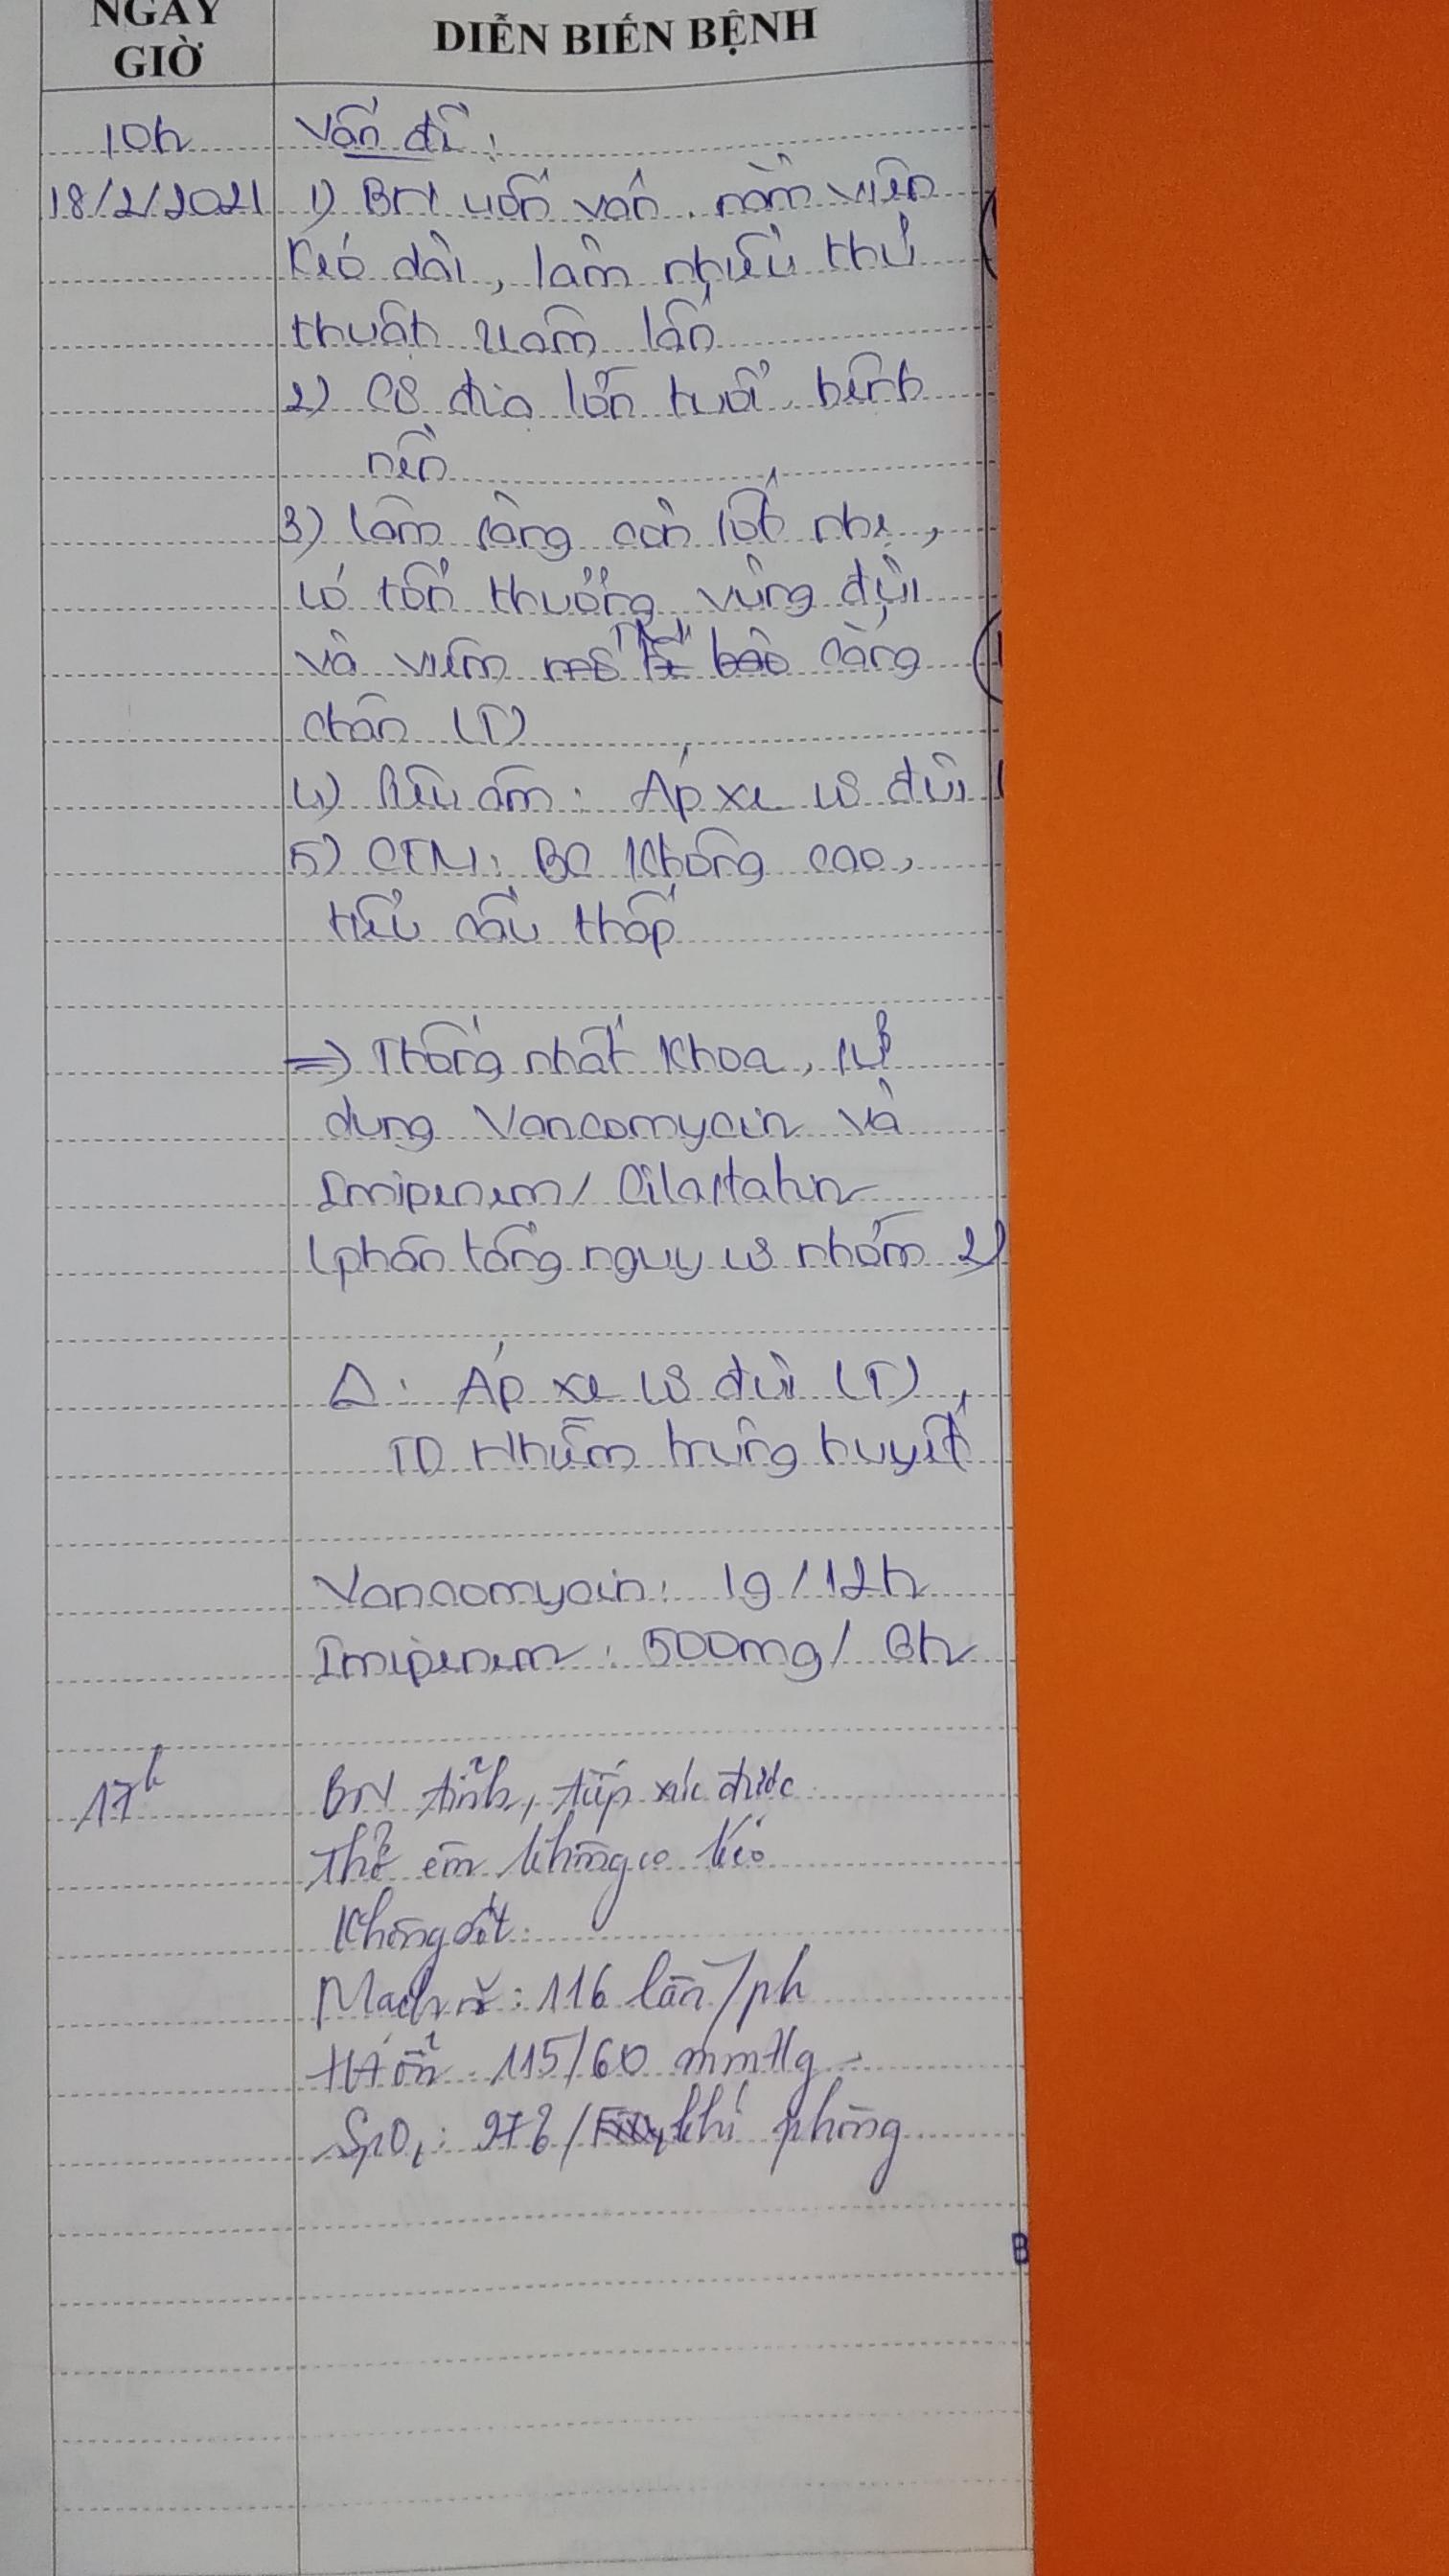 NGÀY GIỜ
DIỄN BIẾN BỆNH
10h
Vấn đề:
18/2/2021
1) BN uốn ván, nằm viện
kéo dài, làm nhiều thủ
thuật xâm lấn
2) Cơ địa lớn tuổi, bệnh
nền
3) Lâm sàng còn sốt nhẹ,
có tổn thương vùng đùi
và viêm cẳng
chân (T)
4) Siêu âm: Áp xe cơ đùi
5) CTM: BC không cao,
tiểu cầu thấp
=> Thống nhất khoa, sử
dụng Vancomycin và
Imipenem/ Cilastatin
(phân tầng nguy cơ nhóm 2)
Δ: Áp xe cơ đùi (T),
TD Nhiễm trùng huyết
Vancomycin: 1g/12h
Imipenem: 500mg/ 6h
17h
BN tỉnh, tiếp xúc được
Thở êm không co kéo
Không sốt.
Mạch: 116 lần/ph
HA ổn 115/60 mmHg
SpO2: /khí phòng
B